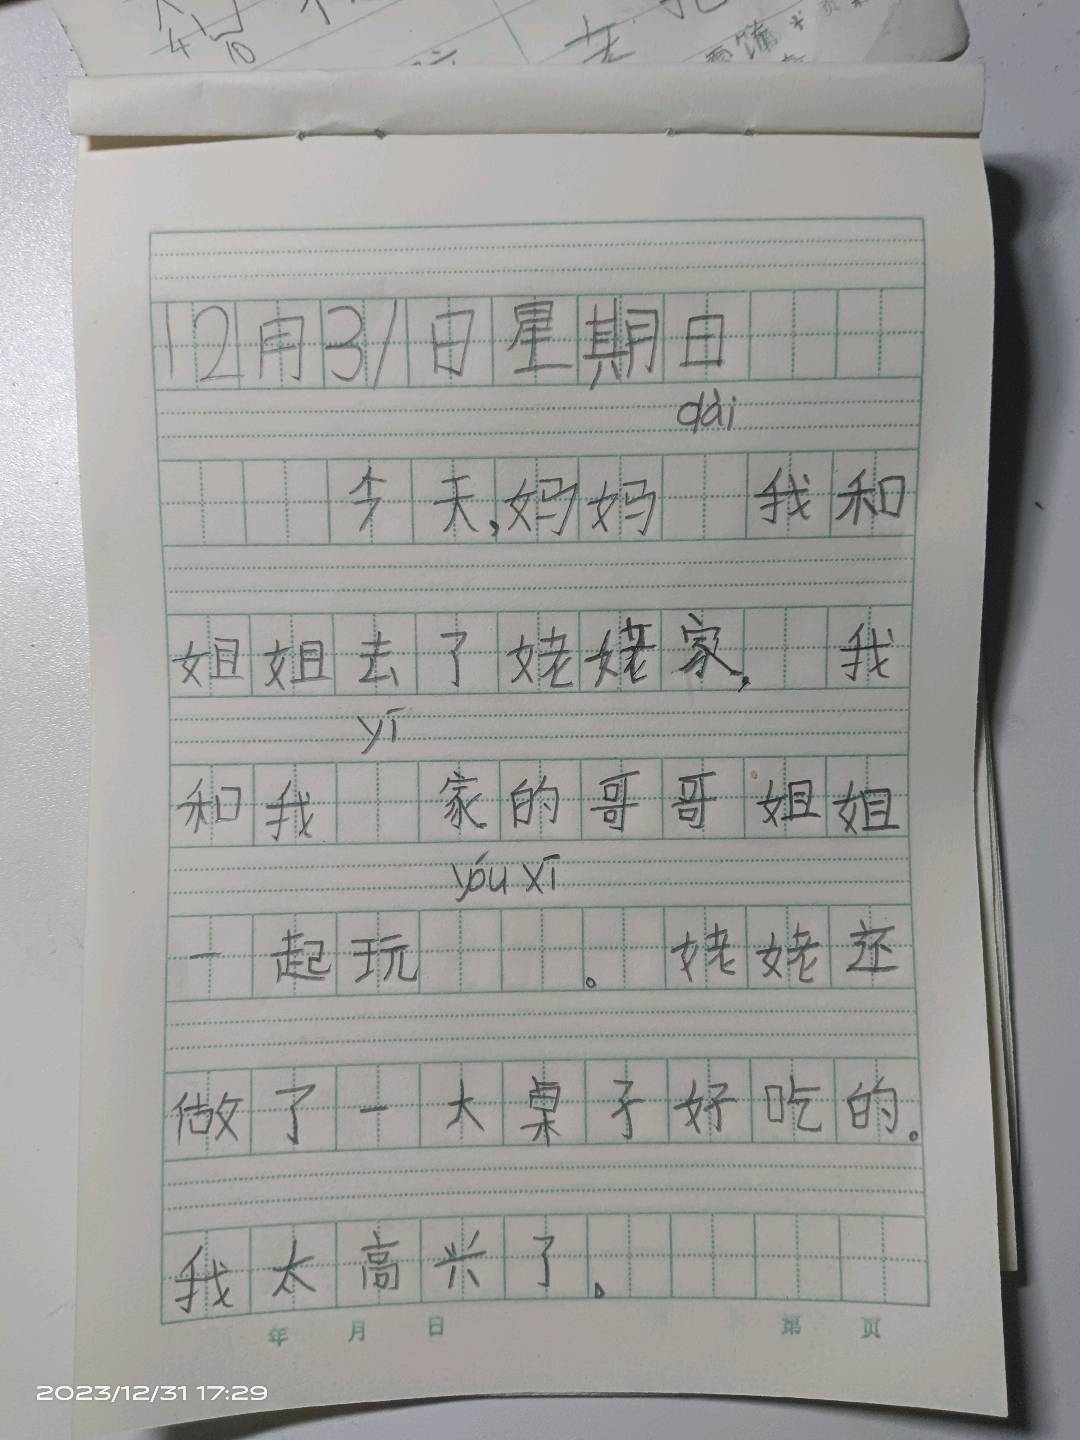 4 10
12月31日星期日
dài
今天,妈妈 我和
姐姐去了姥姥家, 我
yī
和我 家的哥哥姐姐
yóu xī
一起玩 。姥姥还
做了一大桌子好吃的。
我太高兴了。
年 月 日 第 页
2023/12/31 17:29